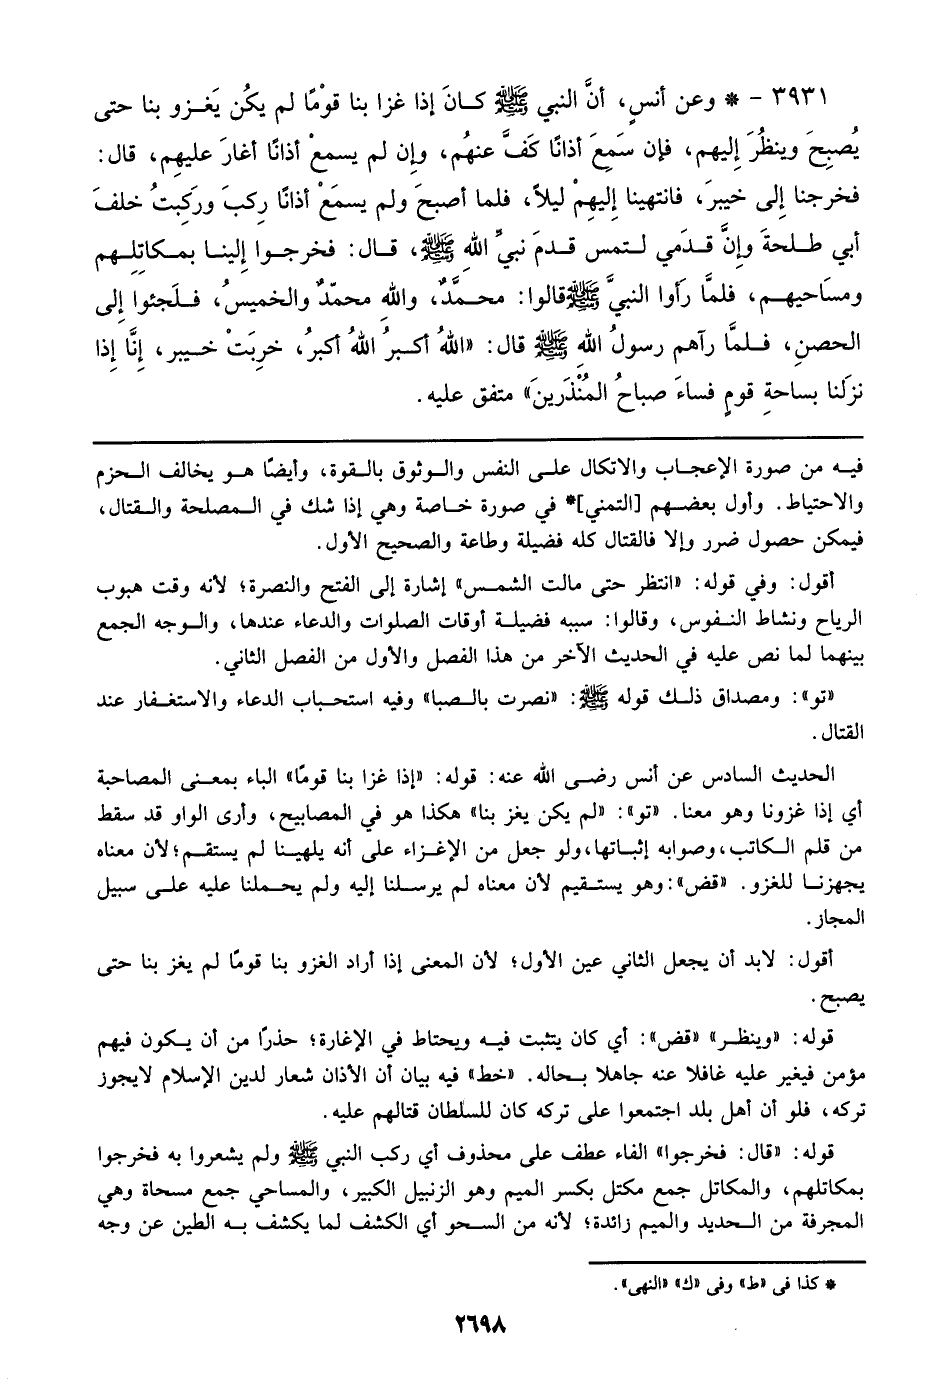 ٣٩٣١ – * وعن أنسٍ، أنَّ النبي ﷺ كـانَ إذا غزا بنا قوْمًا لم يكُن يَغـزو بنا حتى
يُصبِحَ وينظُرَ إِليهم، فإن سَمِعَ أذانًا كَفَّ عنهُم، وإن لم يسمعْ أذانًا أغارَ عليهِم، قال:
فخرجنا إلى خيبرَ، فانتهينا إليهِمْ ليلاً، فلما أصبحَ ولم يسمَعْ أذانًا رِكبَ ورَكِبتُ خلفَ
أبي طـلحةَ وإنَّ قـدَمي لـتمس قـدمَ نبيِّ اللهِ ﷺ، قـال: فخرجـوا إلينـا بمـكاتِلِـهم
ومسَاحيهـم، فلمَّا رَأوا النبيَّ ﷺ قالوا: محـمَّدٌ، واللهِ محمّدٌ والخميسُ، فـلَجئوا إلى
الحصنِ، فـلمَّا رآهم رسولُ اللهِ ﷺ قال: «اللهُ أكـبرُ اللهُ أكبرُ، خربَتْ خـيبر، إنَّا إذا
نزَلنا بساحةِ قومٍ فساءَ صباحُ المُنْذَرينَ» متفق عليه.
فيـه من صورة الإعجـاب والاتكال علـى النفس والـوثوق بالـقوة، وأيضًا هـو يخالف الـحزم
والاحتياط. وأول بعضـهم [التمني]* في صورة خـاصة وهي إذا شك في الـمصلحة والـقتال،
فيمكن حصول ضرر وإلا فالقتال كله فضيلة وطاعة والصحيح الأول.
أقول: وفي قوله: «انتظر حتى مالت الشمـس» إشارة إلى الفتح والنصرة؛ لأنه وقت هبوب
الرياح ونشاط النـفوس، وقالوا: سببه فضيلـة أوقات الصلوات والدعاء عندها، والـوجه الجمع
بينهما لما نص عليه في الحديث الآخر من هذا الفصل والأول من الفصل الثاني.
«تو»: ومصداق ذلـك قوله ﷺ: «نصرت بالـصبا» وفيه استحـباب الدعاء والاستغـفار عند
القتال.
الحديث السادس عن أنس رضـى الله عنه: قوله: «إذا غزا بنا قومًا» الباء بمعنـى المصاحبة
أي إذا غزونا وهو معنا. «تو»: «لم يكن يغز بنا» هكذا هو في المصابيح، وأرى الواو قد سقط
من قلم الـكاتب، وصوابه إثبـاتها، ولو جعل من الإغـزاء على أنه يلهيـنا لم يستقـم؛ لأن معناه
يجهزنـا للغزو. «قض»: وهو يستـقيم لأن معناه لم يرسـلنا إليه ولم يحـملنا عليه علـى سبيل
المجاز.
أقول: لابد أن يجعل الثاني عين الأول؛ لأن المعنى إذا أراد الغزو بنا قومًا لم يغز بنا حتى
يصبح.
قوله: «وينظـر» «قض»: أي كان يتثبت فيـه ويحتاط في الإغارة؛ حذرًا من أن يـكون فيهم
مؤمن فيغير عليه غافلا عنه جاهلا بـحاله. «خط» فيه بيان أن الأذان شعار لدين الإسلام لايجوز
تركه، فلو أن أهل بلد اجتمعوا على تركه كان للسلطان قتالهم عليه.
قوله: «قال: فخرجوا» الفاء عطف على محذوف أي ركب النبي ﷺ ولم يشعروا به فخرجوا
بمكاتلهم، والمكاتل جمع مكتل بكسر الميم وهو الزنبيل الكبير، والمساحي جمع مسحاة وهي
المجرفة من الـحديد والميم زائدة؛ لأنه من السـحو أي الكشف لما يكشف بـه الطين عن وجه
* كذا فى «ط» وفى «ك» «النهى».
٢٦٩٨